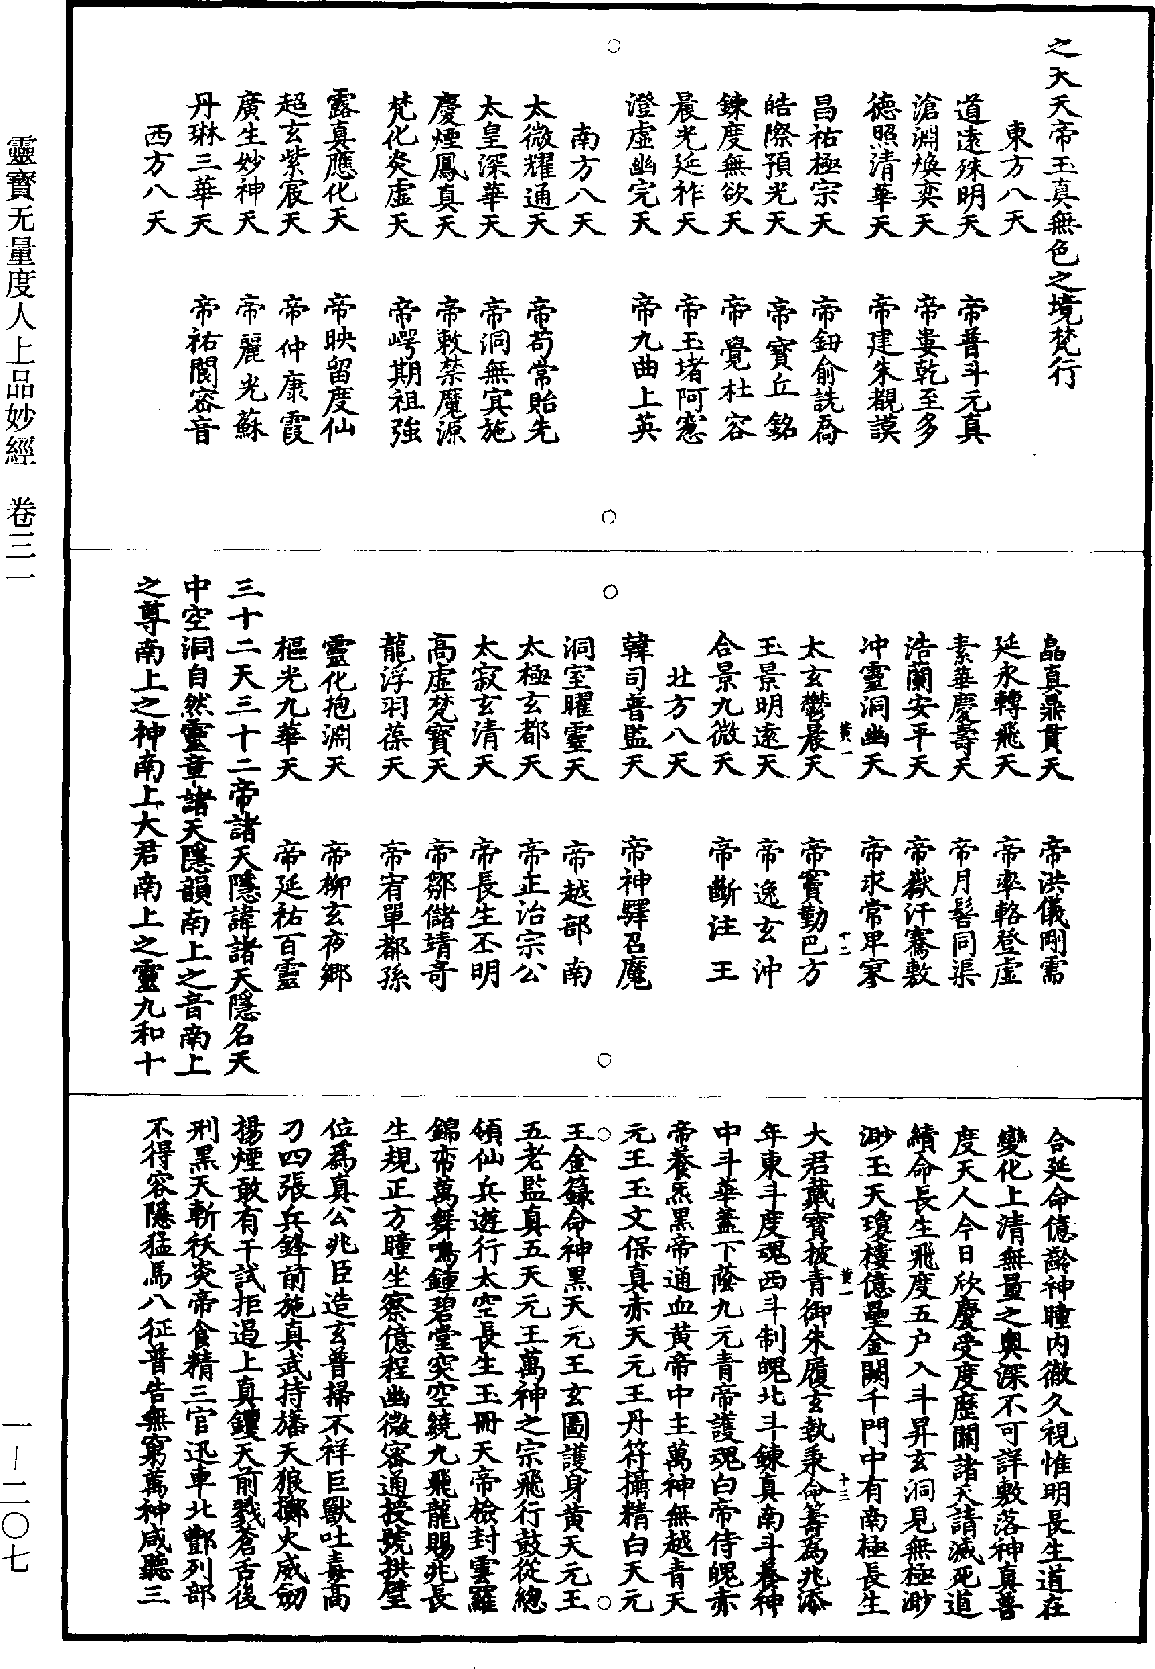 之大天帝玉真無色之境梵行
東方八天
道遠殊明天　帝普斗元真
滄淵煥奕天　帝婁乾至多
德照清華天　帝建朱覩謨
昌祐極宗天　帝鈕俞詵喬
皓際預光天　帝寶丘銘
鍊度無欲天　帝覺杜容
晨光延祚天　帝玉堵阿㝨
澄虛幽完天　帝九曲上英
南方八天
太微耀通天　帝苟常貽先
太皇深華天　帝洞無㝠施
慶煙鳳真天　帝敕禁魔源
梵化炎虛天　帝崿期祖強
露真應化天　帝映留度仙
超玄紫宸天　帝仲康霞
廣生妙神天　帝麗光蘇
丹琳三華天　帝祐閡容音
西方八天
晶真鼎貫天　帝洪儀剛需
延永轉飛天　帝率輅登虛
素華慶壽天　帝月髻同渠
浩蘭安平天　帝嶽汗騫敷
沖靈洞幽天　帝求常卑寥
黃一　十二
太玄鬱晨天　帝竇勤巴方
玉景明遠天　帝逸玄沖
合景九微天　帝斷注王
北方八天
韓司普監天　帝神驛召魔
洞室曜靈天　帝越部南
太極玄都天　帝正治宗公
太寂玄清天　帝長生丕明
高虛梵寶天　帝鄒儲靖奇
龍浮羽葆天　帝宥單都孫
靈化抱淵天　帝柳玄夜鄉
樞光九華天　帝延祐百靈
三十二天三十二帝諸天隱諱諸天隱名天
中空洞自然靈章諸天隱韻南上之音南上
之尊南上之神南上大君南上之靈九和十
合延命億齡神瞳內徹久視惟明長生道在
變化上清無量之奧深不可詳敷落神真普
度天人今日欣慶受度歷關諸天請滅死道
續命長生飛度五户入斗昇玄洞見無極渺
渺玉天瓊樓億壘金闕千門中有南極長生
黃一　十三
大君戴寶披青御朱履玄執秉命籌為兆添
年東斗度魂西斗制魄北斗鍊真南斗養神
中斗華蓋下蔭九元青帝護魂白帝侍魄赤
帝養炁黑帝通血黃帝中主萬神無越青天
元王玉文保真赤天元王丹符攝精白天元
王金籙命神黑天元王玄圖護身黃天元王
五老監真五天元王萬神之宗飛行鼓從總
領仙兵遊行太空長生玉冊天帝檢封雲羅
錦帝萬舞鳴鍾碧堂突空繞九飛龍賜兆長
生規正方瞳坐察億程幽微密通授號拱璧
位為真公兆臣造玄普掃不祥巨獸吐毒高
刁四張兵鋒前施真武持旛天狼擲火威劒
揚煙敢有干試拒遏上真鑊天前戮蒼舌後
刑黑天斬袄炎帝食精三官迅車北酆列部
不得容隱猛馬八征普告無窮萬神咸聽三
靈寶无量度人上品妙經　卷三一
一—二〇七